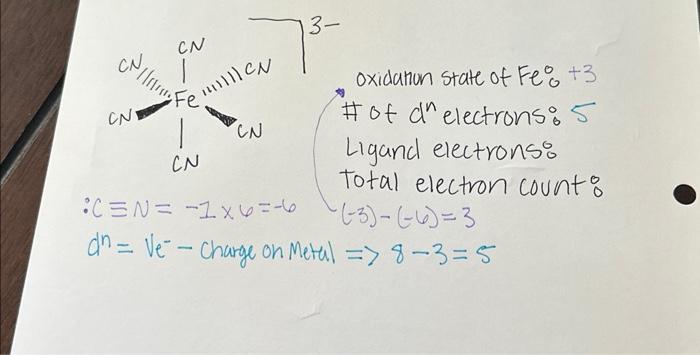 3-
CN
CN CN
Fe
CN CN
CN
Oxidation state of Fe: +3
# of dⁿ electrons: 5
Ligand electrons:
Total electron count:
:C≡N = -1 x 6 = -6 (-3) - (-6) = 3
dⁿ = Ve⁻ - Charge on Metal => 8 - 3 = 5